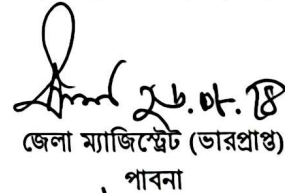 ২৮.০৮.২৪
জেলা ম্যাজিস্ট্রেট (ভারপ্রাপ্ত)
পাবনা